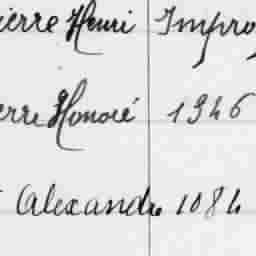 ierre Henri Impro
erre Honoré 1346
Alexandre 1084